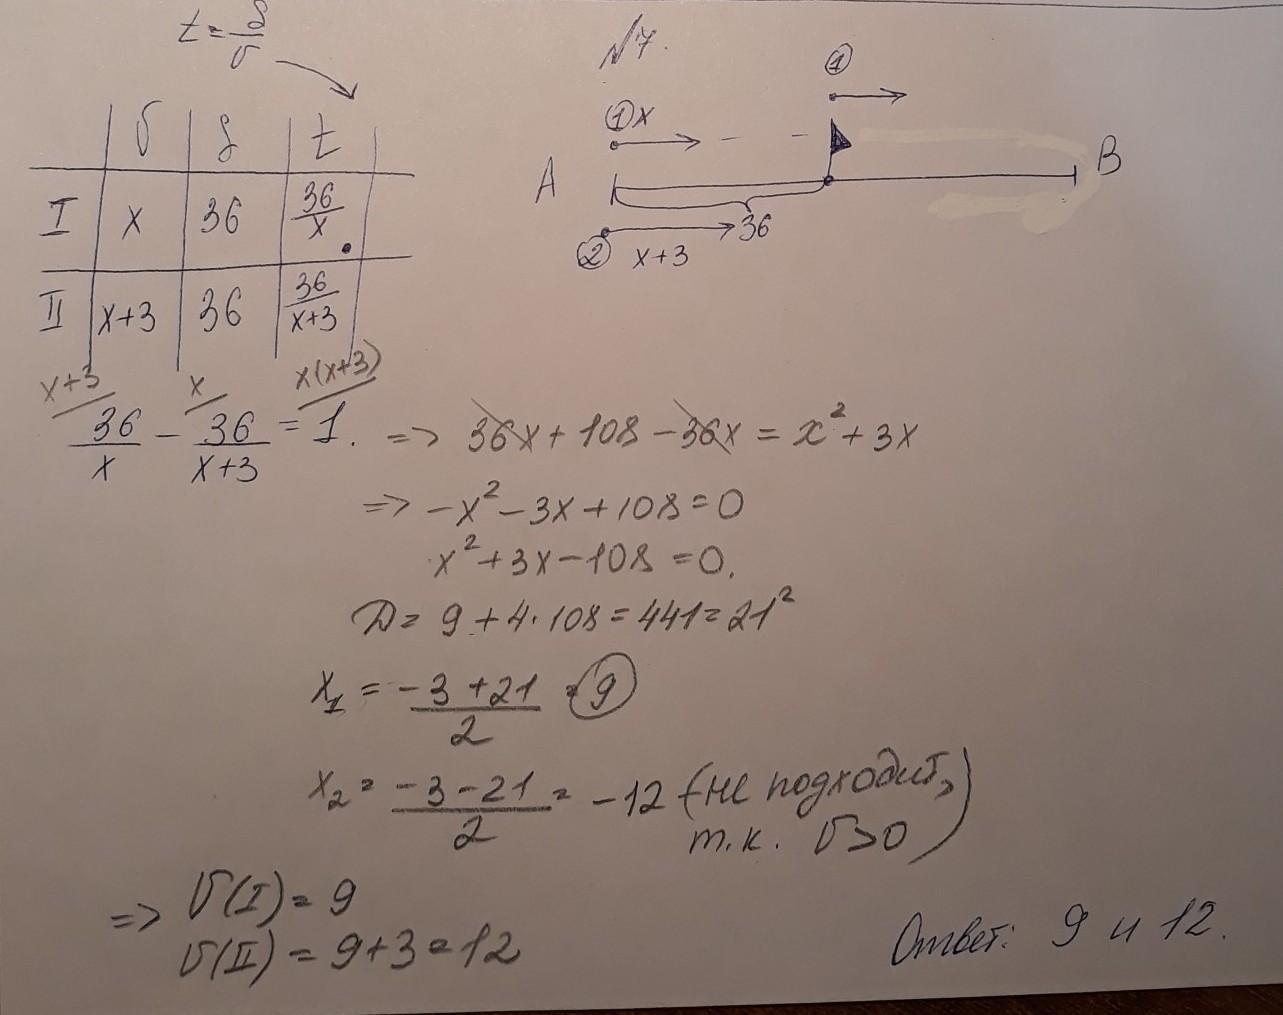 t = S/v
№7.
v S t
I x 36 36/x
II x+3 36 36/(x+3)
① x
①
A B
36
② x+3
x+3 x x(x+3)
36/x − 36/(x+3) = 1. => 36x + 108 − 36x = x² + 3x
=> −x² − 3x + 108 = 0
x² + 3x − 108 = 0.
D = 9 + 4·108 = 441 = 21²
x₁ = (−3 + 21)/2 = 9
x₂ = (−3 − 21)/2 = −12 (не подходит,
т.к. v>0)
=> v(I) = 9
v(II) = 9+3 = 12
Ответ: 9 и 12.